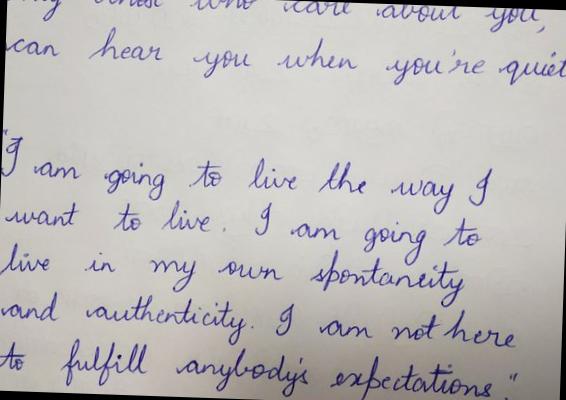 only those who care about you,
can hear you when you're quiet
"I am going to live the way I
want to live. I am going to
live in my own spontaneity
and authenticity. I am not here
to fulfill anybody's expectations."